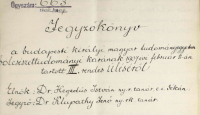 Ügyszám: 663
Jegyzőkönyv
a budapesti királyi magyar tudományegyetem
bölcsészettudományi karának 1907 évi február
tartott III. rendes üléséről
Elnök: Dr. Hegedüs István ny. r. tanár, e. i. dékán
Jegyző: Dr. Klupathy Jenő ny. rk. tanár